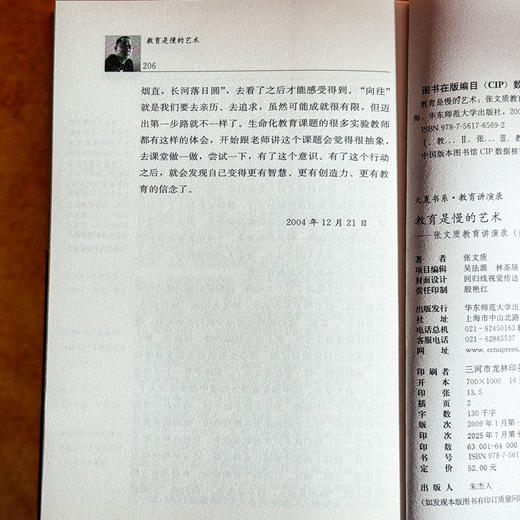 教育是慢的艺术
206
烟直，长河落日圆”，去看了之后才能感受得到。“向往”
就是我们要去亲历、去追求，虽然可能成就很有限，但迈
出第一步路就不一样了。生命化教育课题的很多实验教师
都有这样的体会，开始跟老师讲这个课题会觉得很抽象，
去课堂做一做，尝试一下，有了这个意识、有了这个行动
之后，就会发现自己变得更有智慧、更有创造力、更有教
育的信念了。
2004 年 12 月 21 日
图书在版编目（CIP）数
教育是慢的艺术：张文质教育
海：华东师范大学出版社，200
ISBN 978-7-5617-6569-2
Ⅰ．教… Ⅱ．张… Ⅲ．教
中国版本图书馆 CIP 数据核
大夏书系·教育讲演录
教育是慢的艺术
——张文质教育讲演录（
著 者 张文质
项目编辑 吴法源 林茶居
封面设计 回归线视觉传达
责任印制 殷艳红
出版发行 华东师范大学出
社 址 上海市中山北路
电话总机 021-62450163
客服电话 021-62865537
网 址 www.ecnupress.
印 刷 者 三河市龙林印务
开 本 700×1000 16
印 张 13.5
插 页 2
字 数 130 千字
版 次 2009 年 1 月第一
印 次 2025 年 7 月第十
印 数 63 001-64 000
书 号 ISBN 978-7-561
定 价 52.00 元
出 版 人 朱杰人
（如发现本版图书有印订质量问